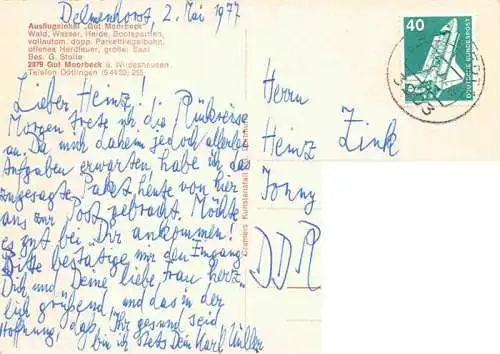 Delmenhorst, 2. Mai 1977
Ausflugslokal "Gut Moorbeck"
Wald, Wasser, Heide, Bootspartien,
vollautom. dopp. Parkettkegelbahn,
offenes Herdfeuer, großer Saal
Bes. G. Stolle
2879 Gut Moorbeck ü. Wildeshausen
Telefon Dötlingen (0 44 33) 255
Lieber Heinz!
Morgen trete ich die Rückreise
an. Da mich daheim jedoch allerlei
Aufgaben erwarten habe ich das
zugesagte Paket heute von hier
aus zur Post gebracht. Möchte
es gut bei Dir ankommen!
Bitte bestätige mir den Eingang.
Dich und Deine liebe Frau herz-
lich grüßend, und das in der
Hoffnung, daß Ihr gesund seid
bin ich stets Dein Karl Müller
Cramers Kunstanstalt
40
DEUTSCHE BUNDESPOST
Herrn
Heinz Zink
DDR